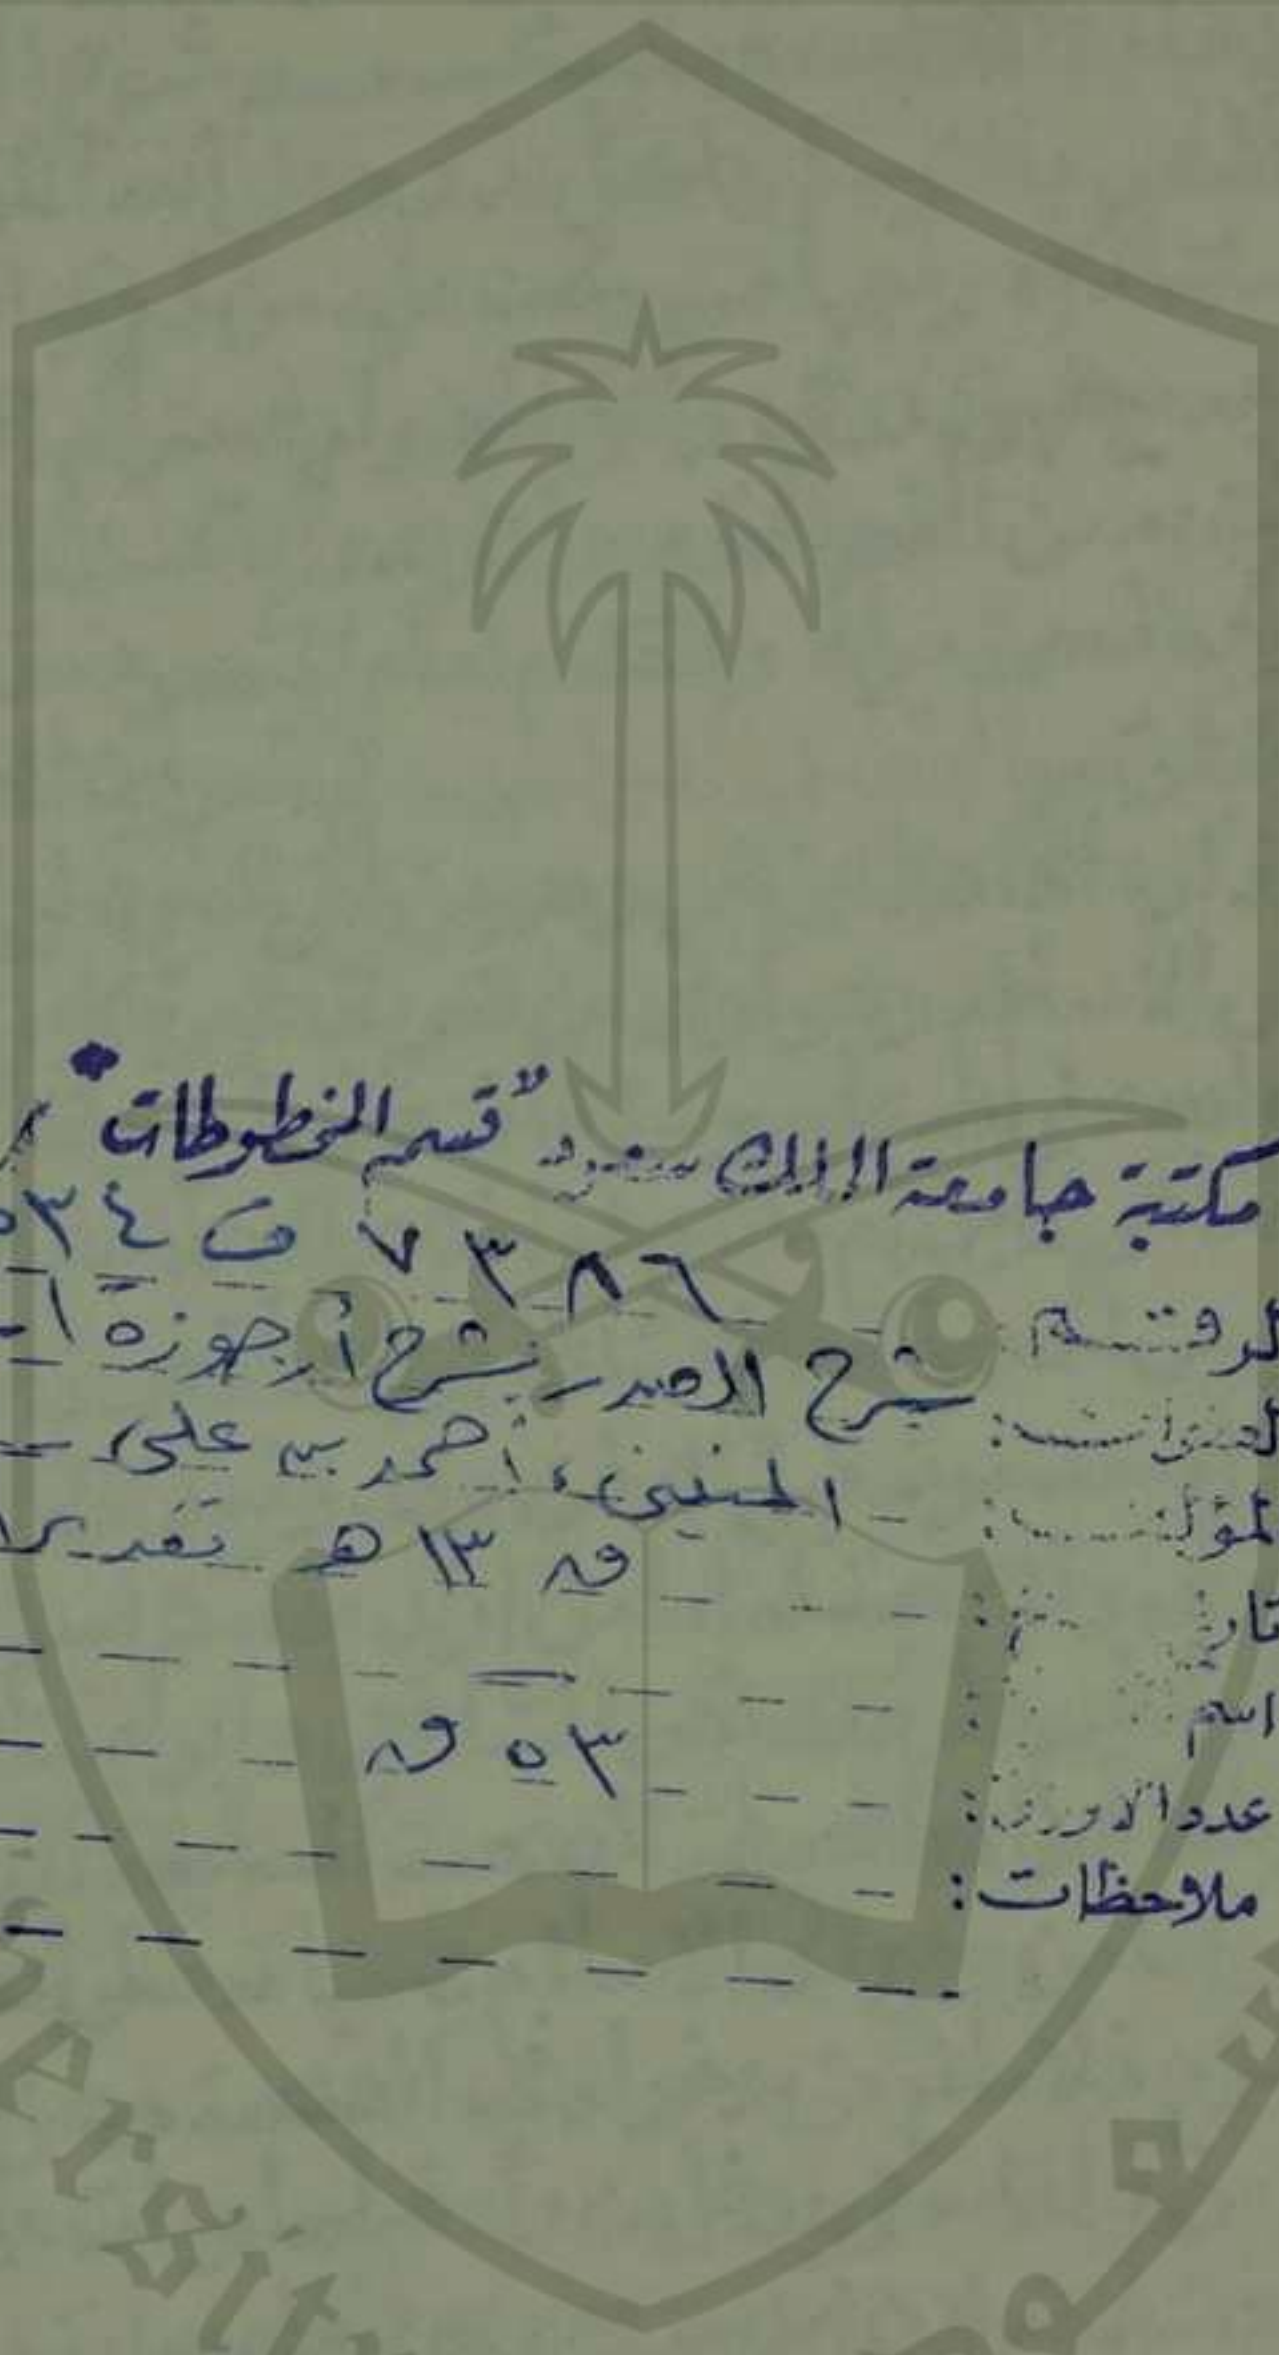 مكتبة جامعة الملك سعود "قسم المخطوطات"
الرقم: ٧٣٨٦ ف ٥٣٤
العنوان: شرح الصدر بشرح أرجوزة
المؤلف: المنيني، أحمد بن علي
ق ١٣ هـ تقديرا
اسم
عدد الأوراق: ٥٣ ق
ملاحظات:
ersity